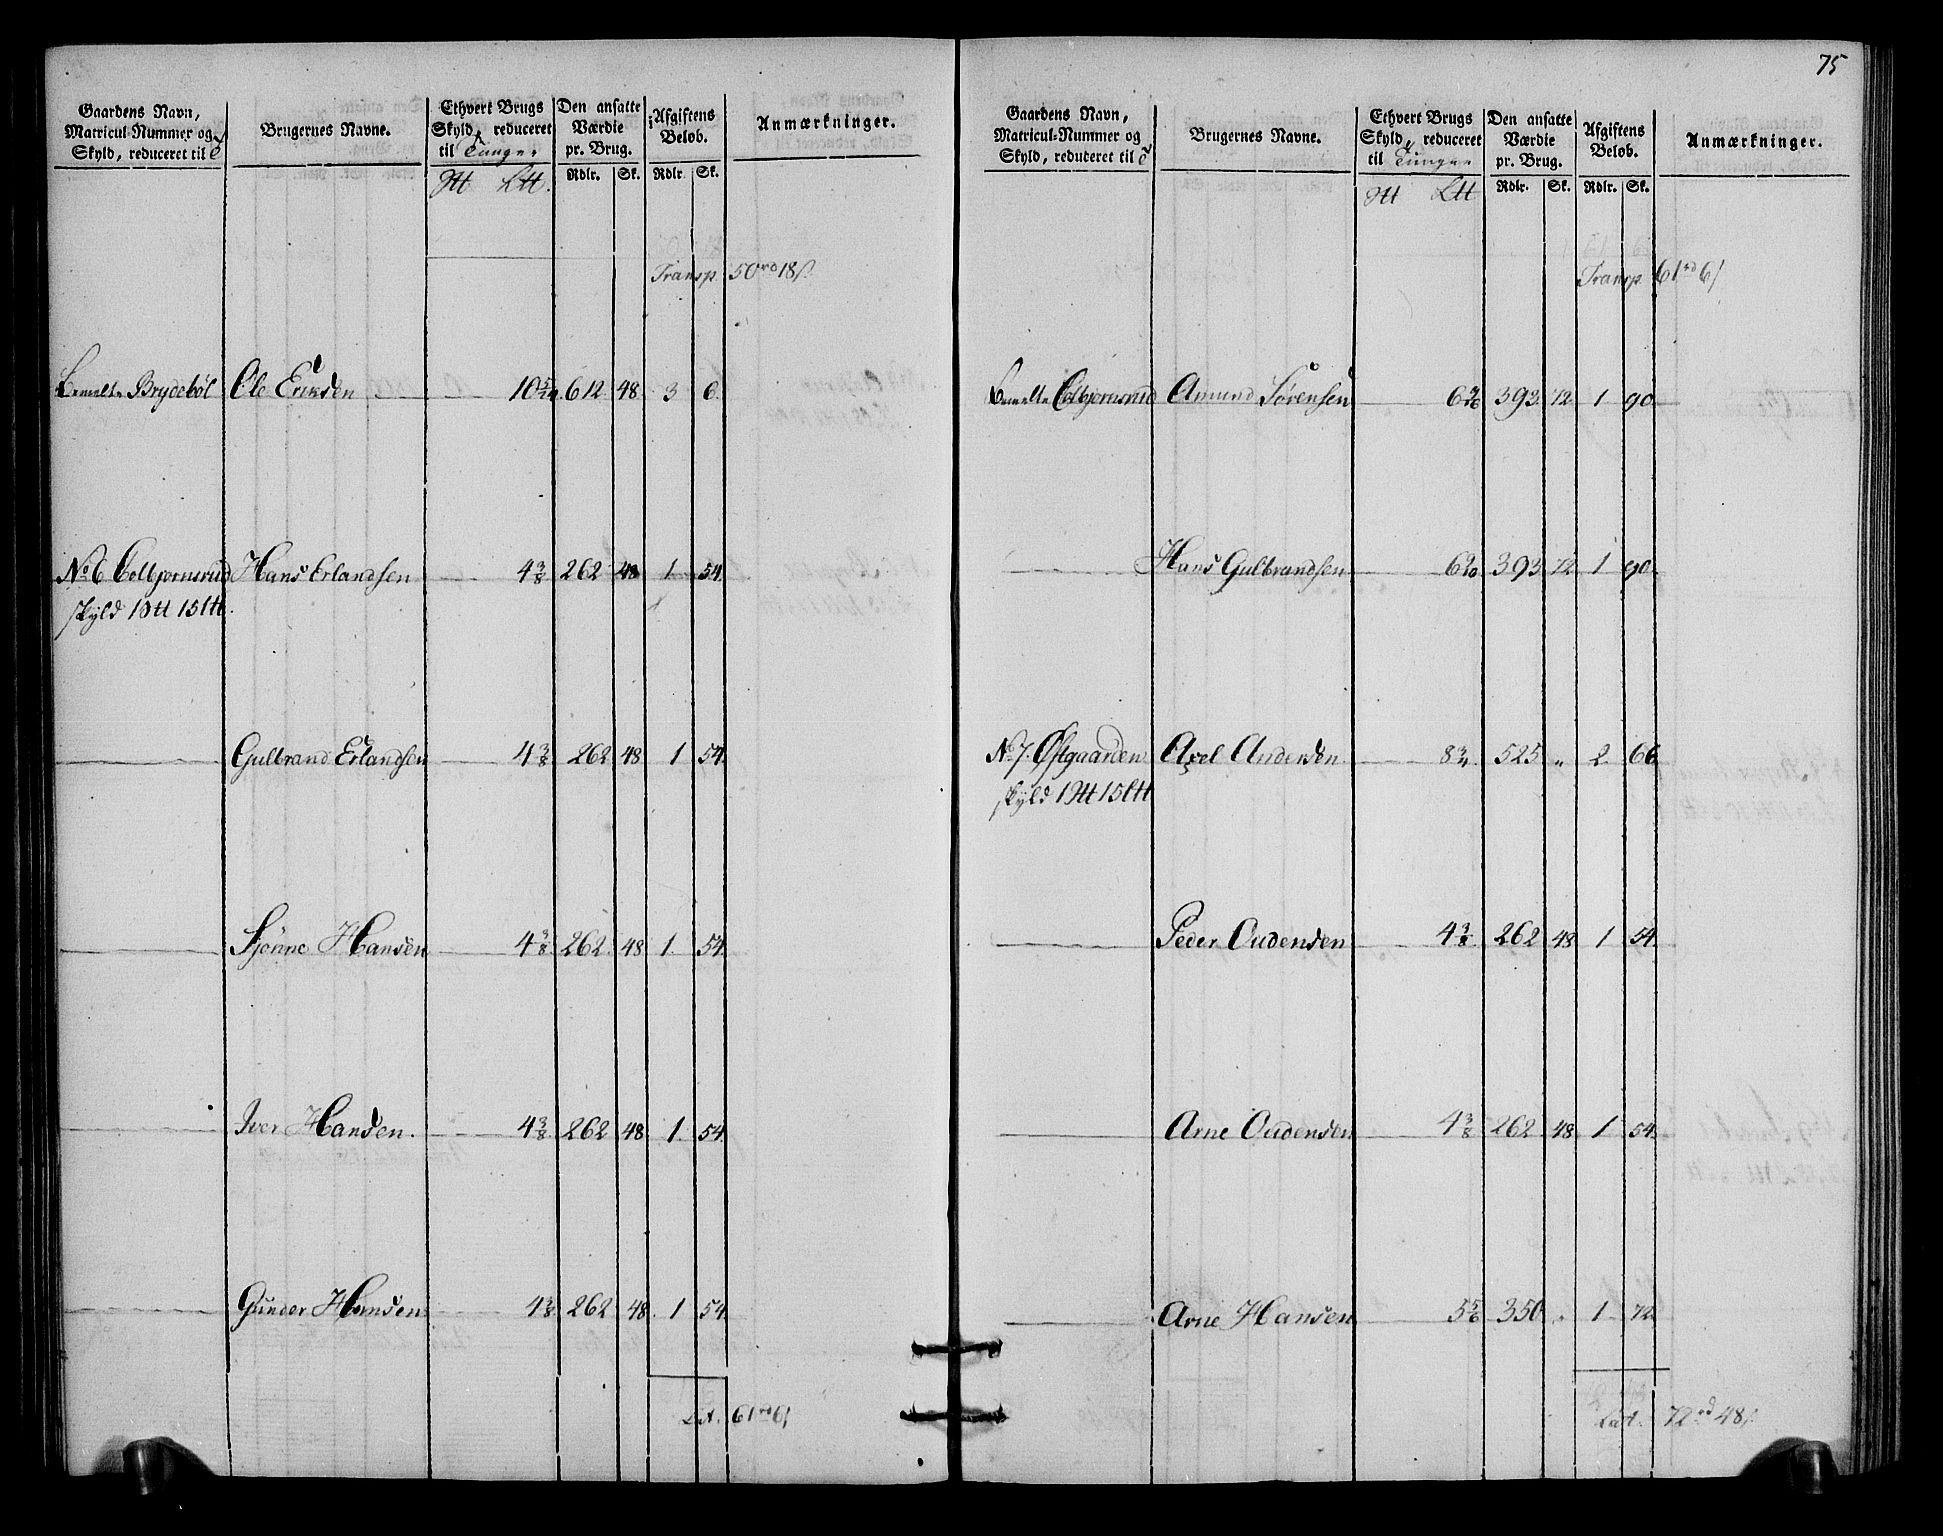 75
Gaardens Navn, Matricul-Nummer og Skyld, reduceret til
Brugernes Navne.
Ethvert Brugs Skyld, reduceret til Tunge
Den ansatte Værdie pr. Brug.
Afgiftens Beløb.
Anmærkninger.
Rdlr. Sk. Rdlr. Sk.
Transp. 50 rd 18 s.
Bemelte Brydebøl Ole Eriksen 10 5/24 612 48 3 6
No 6 Colbjørnsrud Hans Erlandsen 4 3/8 262 48 1 54
Skyld 1 15
Gulbrand Erlandsen 4 3/8 262 48 1 54
Sjønne Hansen 4 3/8 262 48 1 54
Iver Hansen 4 3/8 262 48 1 54
Gunder Hansen 4 3/8 262 48 1 54
Lat. 61 rd 6 s
Gaardens Navn, Matricul-Nummer og Skyld, reduceret til
Brugernes Navne.
Ethvert Brugs Skyld, reduceret til Tunge
Den ansatte Værdie pr. Brug.
Afgiftens Beløb.
Anmærkninger.
Rdlr. Sk. Rdlr. Sk.
Transp. 61 rd 6 s
Bemelte Colbjørnsrud Amund Sørensen 393 72 1 90
Hans Gulbrandsen 393 72 1 90
No 7. Østgaarden Axel Andersen 8 3/4 525 " 2 66
Skyld 1 15
Peder Oudensen 4 3/8 262 48 1 54
Arne Oudensen 4 3/8 262 48 1 54
Arne Hansen 5 5/6 350 " 1 72
Lat. 72 rd 48 s.